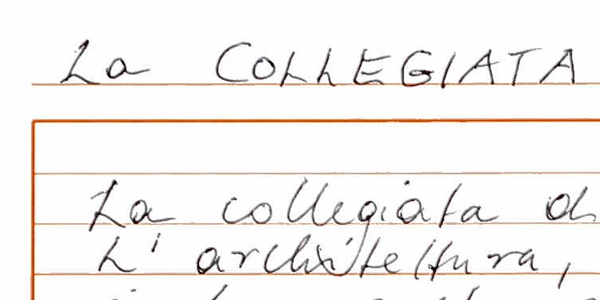 La COLLEGIATA
La collegiata di
L'architettura,